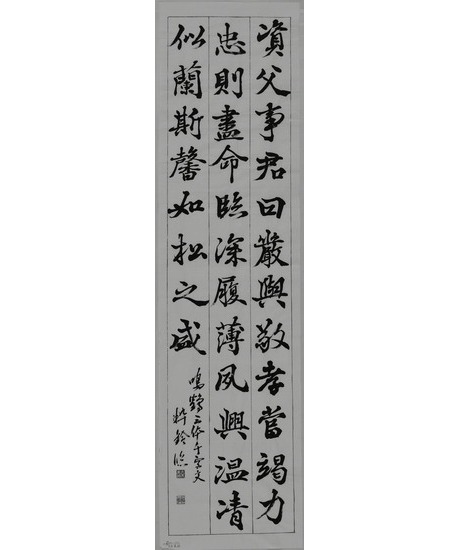 資父事君曰嚴與敬孝當竭力
忠則盡命臨深履薄夙興温凊
似蘭斯馨如松之盛
鳴鶴三体千字文
粋鈴臨